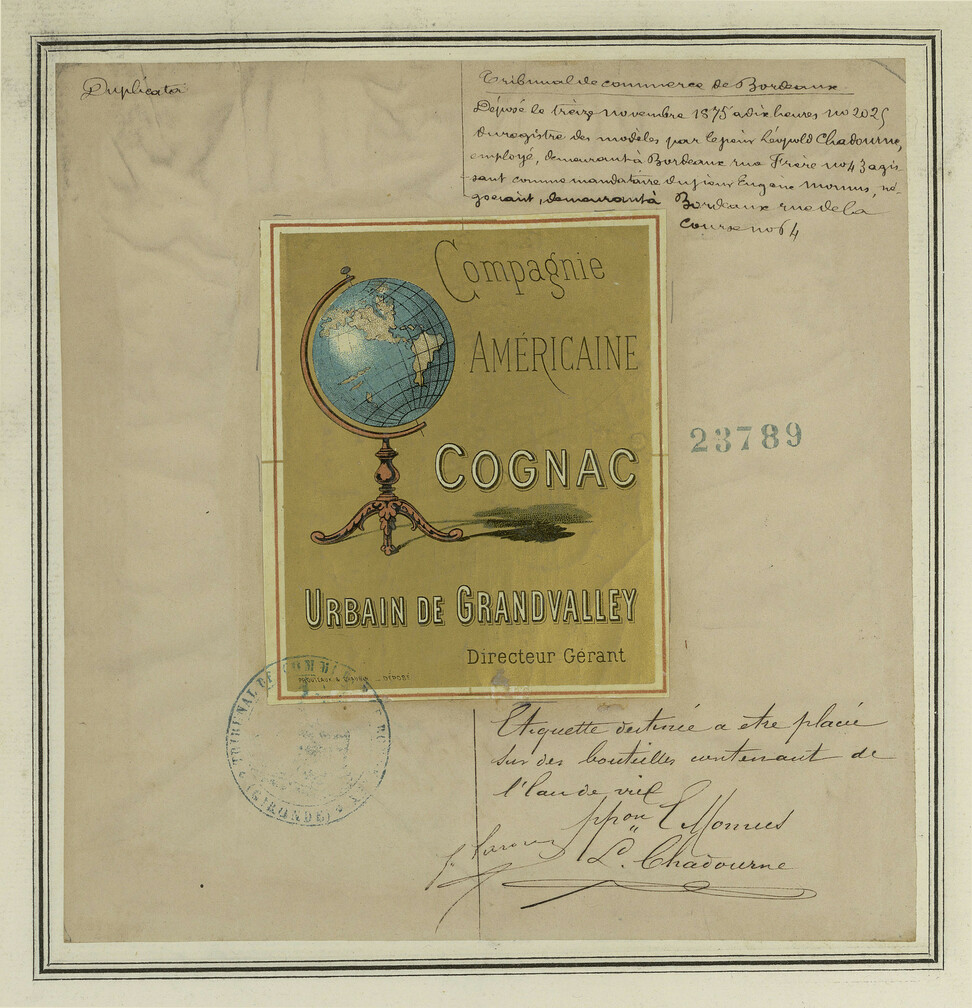 Duplicata
Tribunal de commerce de Bordeaux
Déposé le treize novembre 1875 a dix heures no 2025
du registre des modèles par le sieur Léopold Chadourne,
employé, demeurant à Bordeaux rue Frère no 43 agis
sant comme mandataire du sieur Eugène Momus, né
gociant, demeurant à Bordeaux rue de la
course no 64
Compagnie
AMÉRICAINE
23789
COGNAC
URBAIN DE GRANDVALLEY
Directeur Gérant
DÉPOSÉ
TRIBUNAL DE COMMERCE
(GIRONDE)
Etiquette destinée a etre placée
sur des bouteilles contenant de
l'Eau de vie
ppon E Momus
L. Chadourne